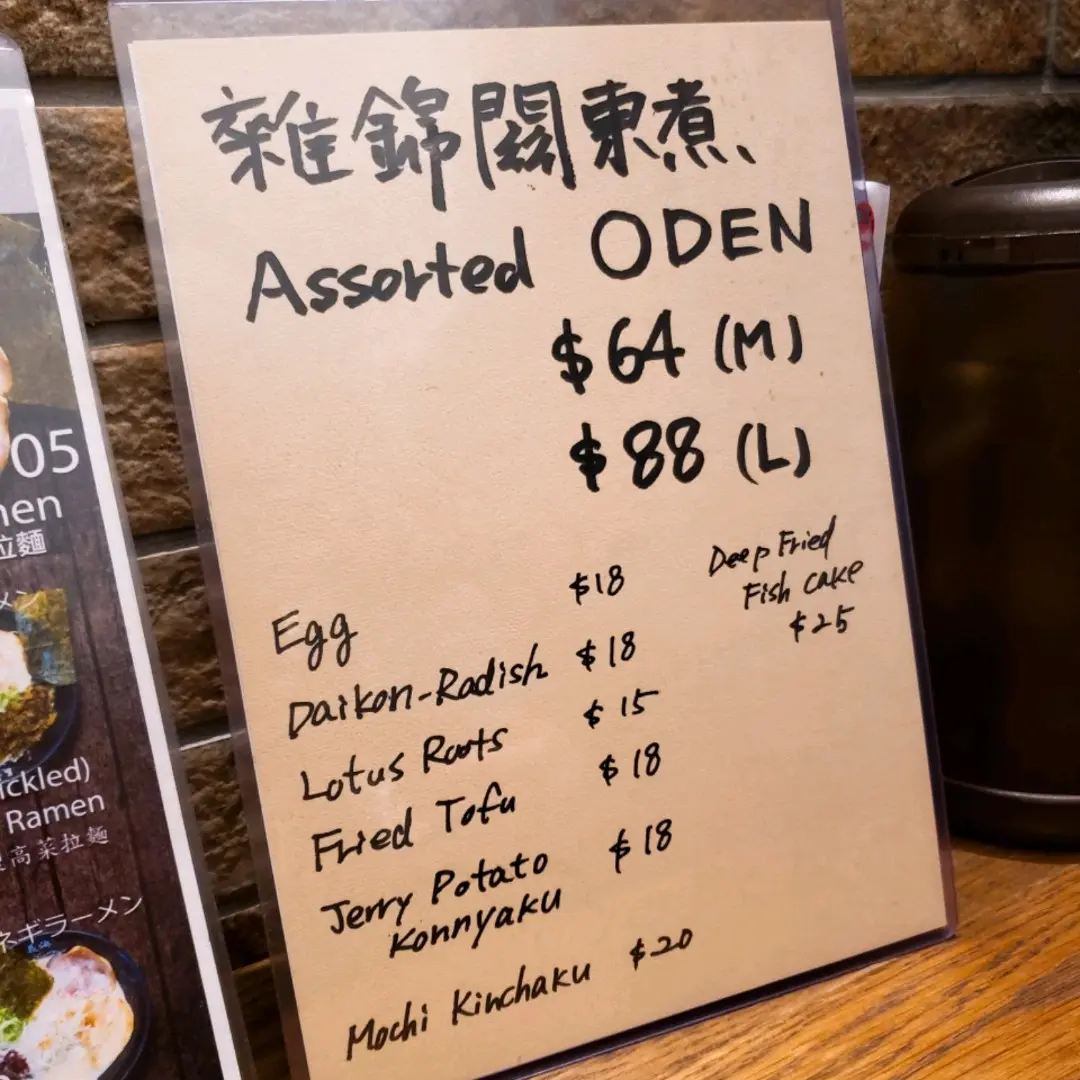 雜錦關東煮
Assorted ODEN
$64 (M)
$88 (L)
Egg $18
Daikon-Radish $18
Lotus Roots $15
Fried Tofu $18
Jerry Potato $18
Konnyaku
Mochi Kinchaku $20
Deep Fried
Fish cake
$25
05
拉麵
ickled)
Ramen
高菜拉麵
ネギラーメン